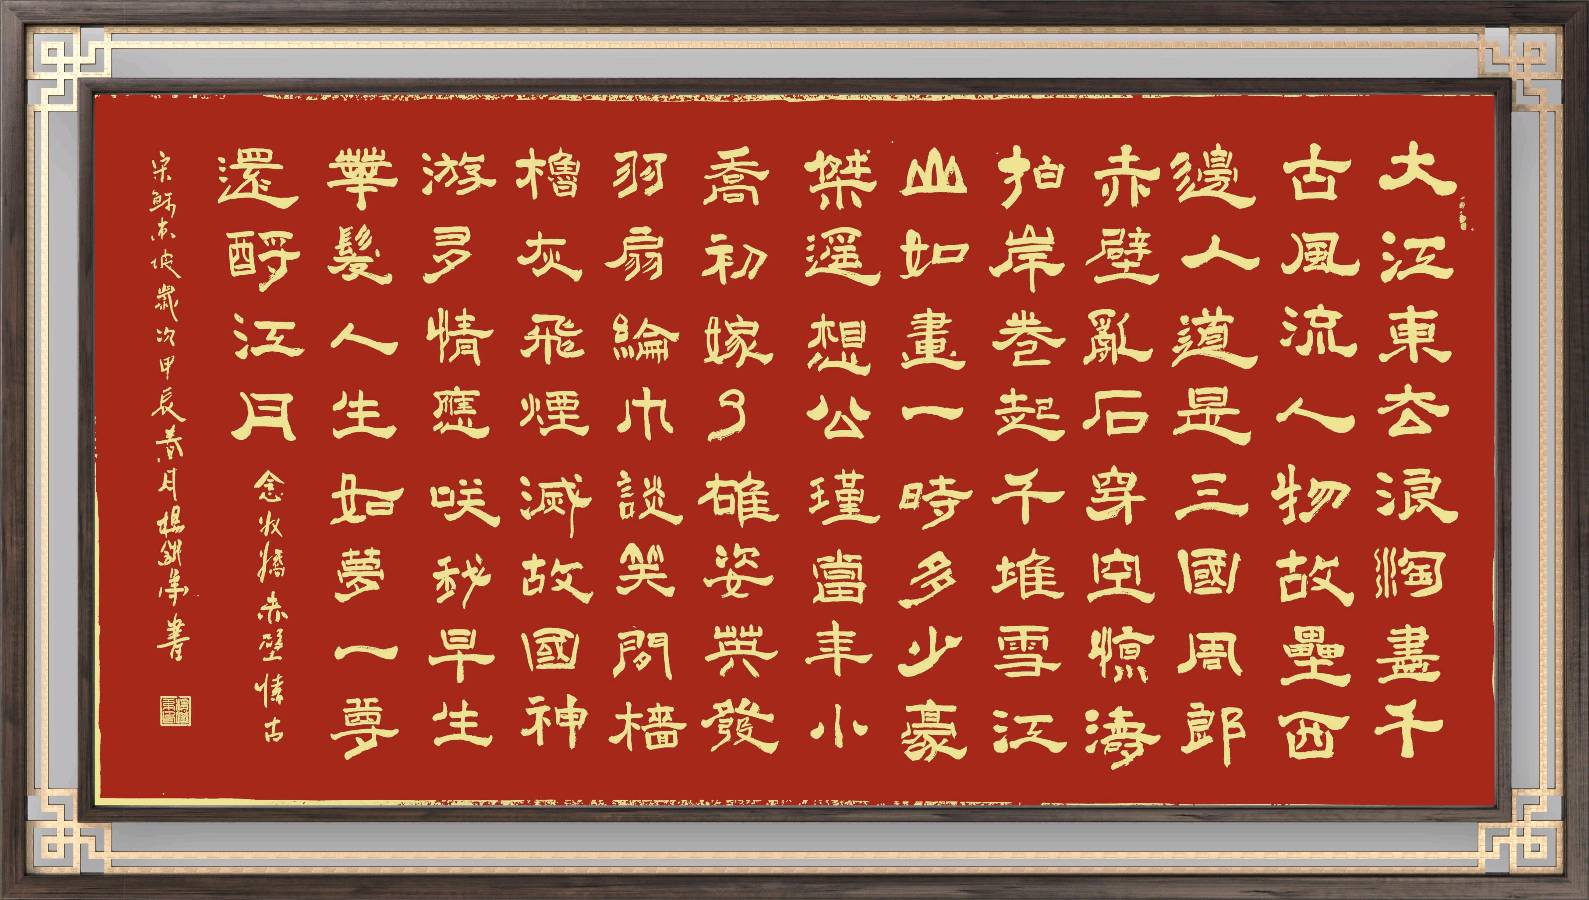 大江東去浪淘盡千
古風流人物故壘西
邊人道是三國周郎
赤壁亂石穿空惊濤
拍岸卷起千堆雪江
山如畫一時多少豪
傑遥想公瑾當年小
喬初嫁了雄姿英發
羽扇綸巾談笑間檣
櫓灰飛煙滅故國神
游多情應咲我早生
華髮人生如夢一尊
還酹江月 念奴嬌赤壁懷古
宋蘇東坡歲次甲辰春月楊鐵軍書